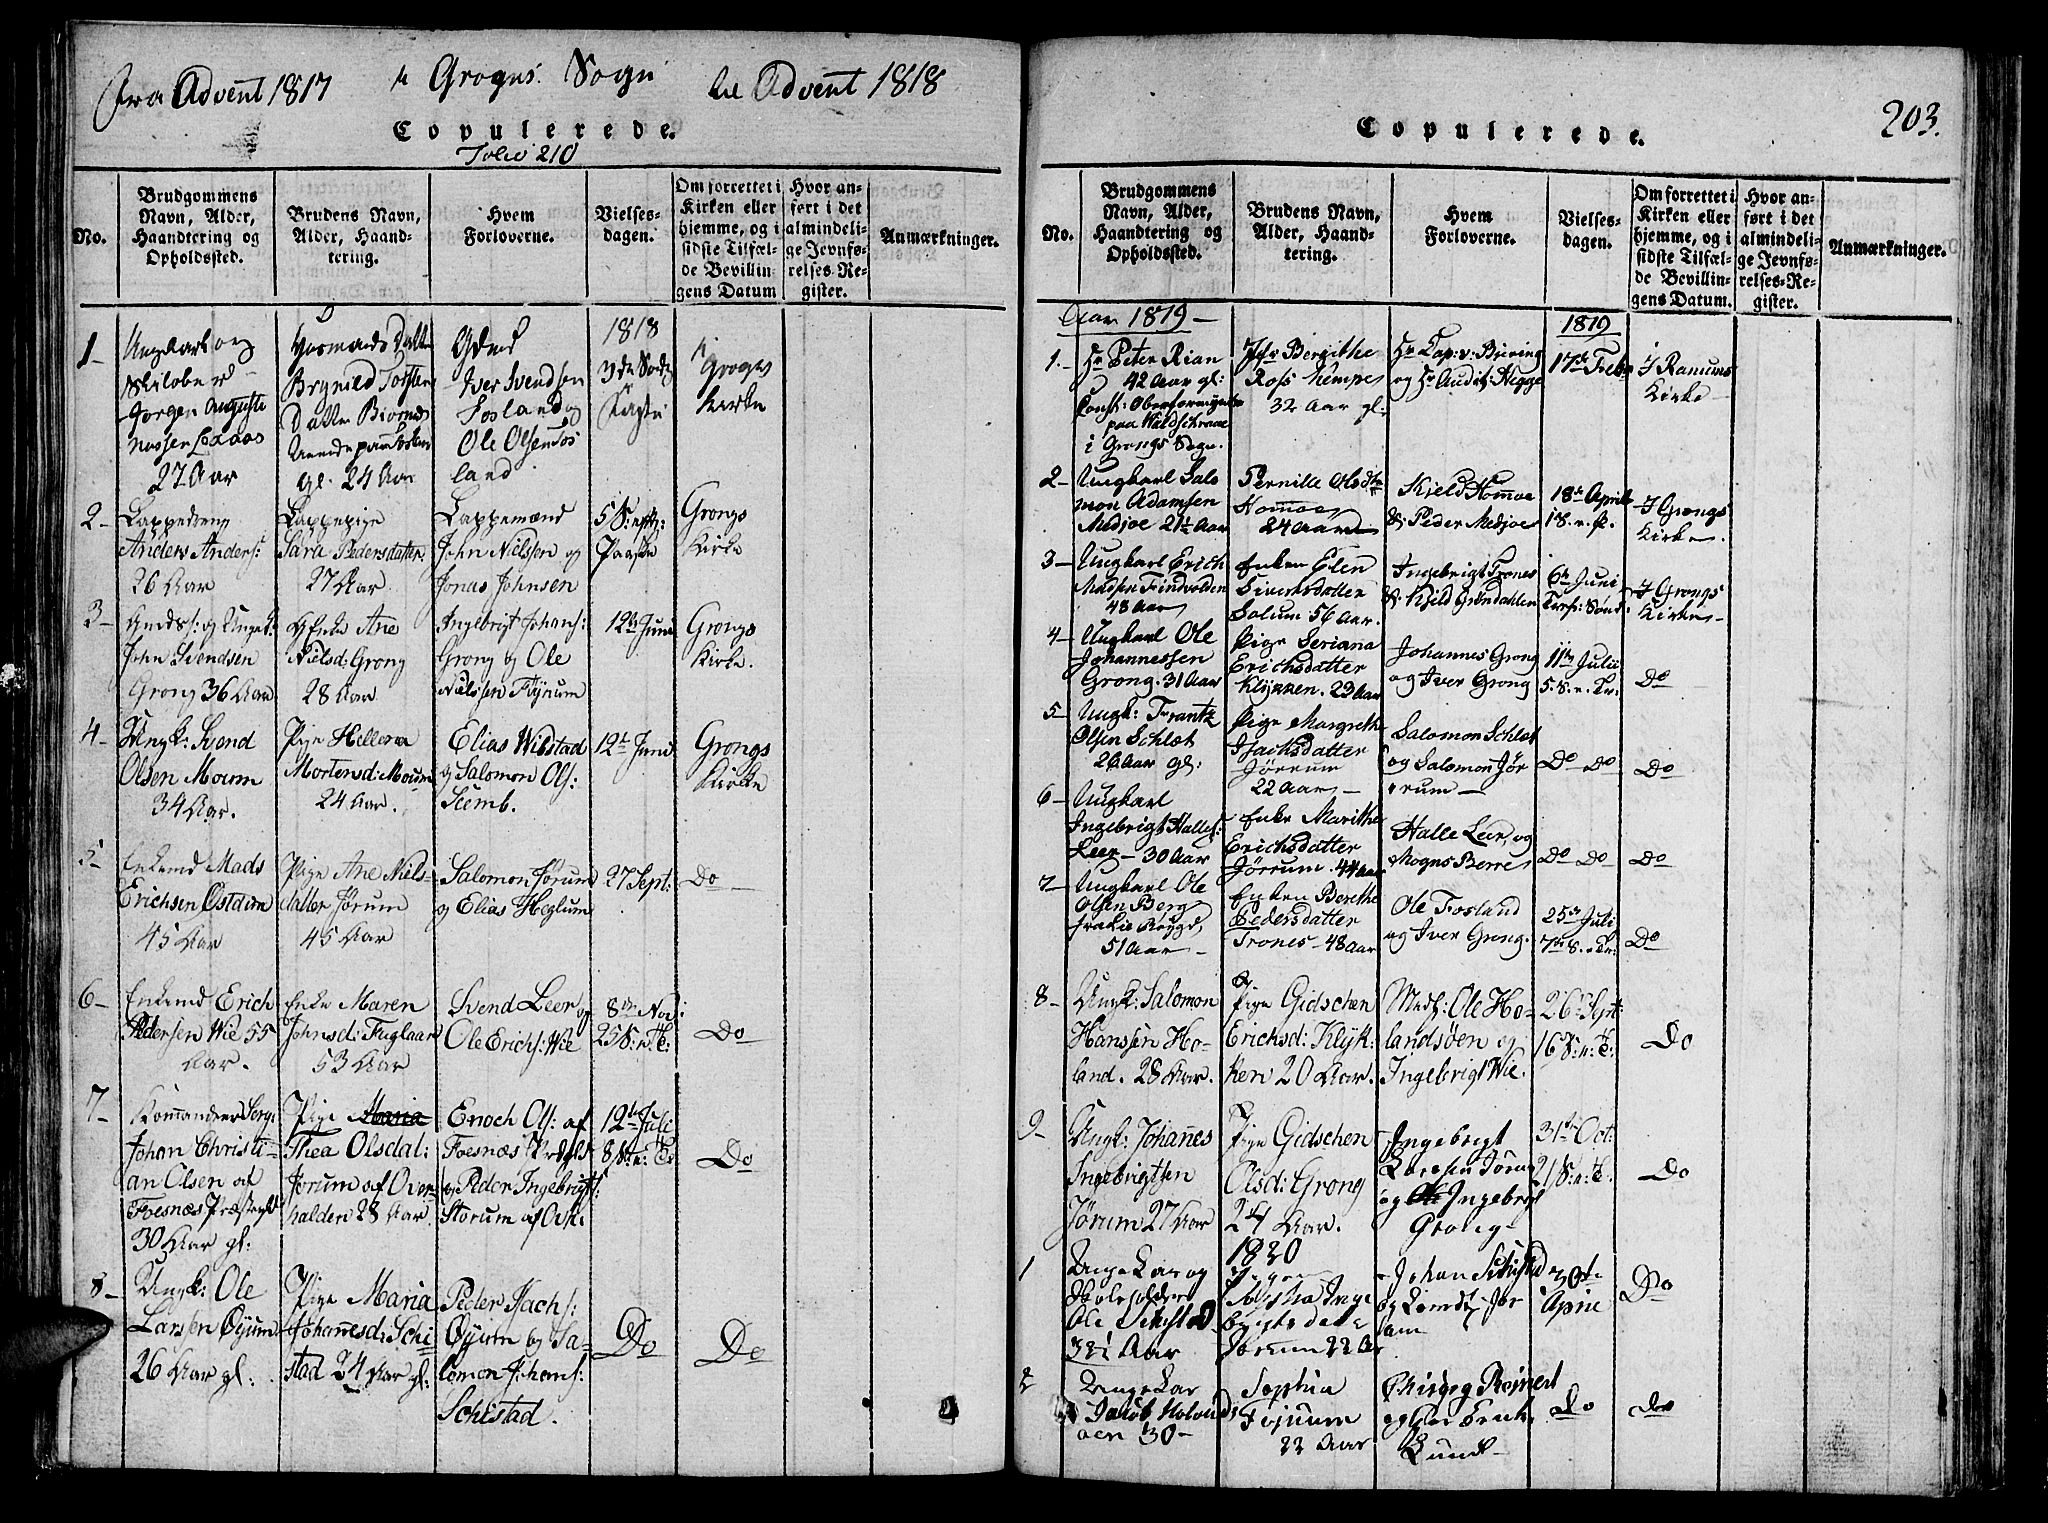 Fra Advent 1817 i Grogns Sogn til Advent 1818
Copulerede.
Folio 210
No.
Brudgommens Navn, Alder, Haandtering og Opholdssted.
Brudens Navn, Alder, Haandtering.
Hvem Forloverne.
Vielsesdagen.
Om forrettet i Kirken eller hjemme, og i sidste Tilfælde Bevillingens Datum
Hvor anført i det almindelige Jevnførelses-Register.
Anmærkninger.
1818
1
Ungkarl og
Jørgen Auguste
27 Aar
Brynild
gl. 24 Aar
Iver Svendsen
Fosland og
Ole Olsen Fos
land
3de Søde
i
Grogns
Kirke
2-
Lappedreng
Anders Anders:
26 Aar
Lappepige
Sara Pedersdatter
27 Aar
Lappemænd
John Nielssen og
Jonas Johnsen
5 S: efter
Paaske
Grongs
Kirke
3-
John Svendsen
Grong 36 Aar
Enke Ane
Nielsd: Grong
28 Aar
Ingebrigt Johans:
Grong og Ole
Nielssen Flønum
12te Juni
Grongs
Kirke.
4-
Ungk: Svend
Olsen Moum
34 Aar.
Pige Hellena
Mortensd: Moum
24 Aar.
Elias Wibstad
og Salomon Ols:
Seemb.
12te Juni
Grongs
Kirke
5-
Enkemd Mads
Erichsen Østdum
45 Aar
Pige Ane Niels-
datter Jørum
45 Aar
Salomon Jørum
og Elias Heglum
27 Sept:
Do
6-
Enkemd Erich
Pedersen Wie 55
Aar.
Enke Maren
Johnsd: Fuglaar
53 Aar
Svend Leer og
Ole Erichs: Wie
8de Nov:
25 S: n: T:
Do
7-
Komandeer Serg:
Johan Christi-
an Olsen af
Foesnæs Præstegield
30 Aar gl:
Pige Maria
Thea Olsdat:
Jørum af Over-
halden 28 Aar.
Enoch Ols: af
Foesnæs Prægld
og Peder Ingebrigts:
Storum af Ovh:
12te Juli
8 S: n: T:
Do
8-
Ungk: Ole
Larssen Øyum
26 Aar gl.
Pige Maria
Johannesd: Schi
stad 24 Aar gl:
Peder Isachs:
Øyum og Sa-
lomon Johans:
Schistad.
Do
Do
Copulerede.
203.
No.
Brudgommens Navn, Alder, Haandtering og Opholdssted.
Brudens Navn, Alder, Haandtering.
Hvem Forloverne.
Vielsesdagen.
Om forrettet i Kirken eller hjemme, og i sidste Tilfælde Bevillingens Datum.
Hvor anført i det almindelige Jevnførelses-Register.
Anmærkninger.
Aar 1819 -
1819
1.-
Hr Peter Rian
42 Aar gl:
Const: Oberformynder
paa
i Grongs Sogn.
Jfr Bergithe
Ross Kempe
32 Aar gl.
Hr Cap: v: Buring
og Hr Audit: Hegge
17de Febr
I Ranums
Kirke
2-
Ungkarl Salo
mon Adamsen
Medjoe 21½ Aar
Pernille Olsdtr
Homoe
24 Aar
Kjeld Homoe
& Peder Medjoe
18de April
1 S. e. P.
I Grongs
Kirke
3-
Ungkarl Erich
Madsen Findvolden
48 Aar
Enken Elen
Sivertsdatter
Salum 56 Aar.
Ingebrigt Trones
& Kjeld Grøndahlen
6te Juni
Tref: Sønd:
I Grongs
Kirke-
4-
Ungkarl Ole
Johannessen
Grong. 31 Aar
Pige Seriana
Erichsdatter
Klykken. 23 Aar
Johannes Grong
og Iver Grong
11te Julii
5. S. e. Tr.
Do
5-
Ungk: Frantz
Olsen Schlæt
26 Aar gl:
Pige Margrethe
Isachsdatter
Jørrum
22 Aar
Salomon Schlæt
og Salomon Jør
rum -
Do Do
Do
6-
Ungkarl
Ingebrigt Halles:
Leer - 30 Aar
Enke Marithe
Erichsdatter
Jørrum. 44 Aar
Halle Leer, og
Mogns Berre
Do Do
Do
7-
Ungkarl Ole
Olsen Berg
fra Lie Bøygd,
51 Aar -
Enken Berethe
Pedersdatter
Trones - 48 Aar
Ole Fosland
og Iver Grong.
25de Juli
7de S. e. Tr:
Do
8-
Ungk: Salomon
Hanssen Ho-
land. 28 Aar.
Pige Gidschen
Erichsd: Klyk:
ken 20 Aar.
Mads: Ole Ho-
landsøen og
Ingebrigt Wie.
26de Sept:
16 S: n: T:
Do
9-
Ungk: Johannes
Ingebrigtsen
Jørum 27 Aar
Pige Gidschen
Olsd: Grong
24 Aar.
Ingebrigt
Larssen Jørum
og Ole Ingebrigt
Grong-
31te Oct:
21 S: n: T:
Do
1820
1
Unge Kar og
Skoleholder
Ole
32½ Aar
Pigen
Inge
brigts datr
Jørum 22 Aar
Johan
og
30te
April
Do
2
Unge Kar
Jacob
30-
Sophia
22 Aar
og
Lund
Do
do